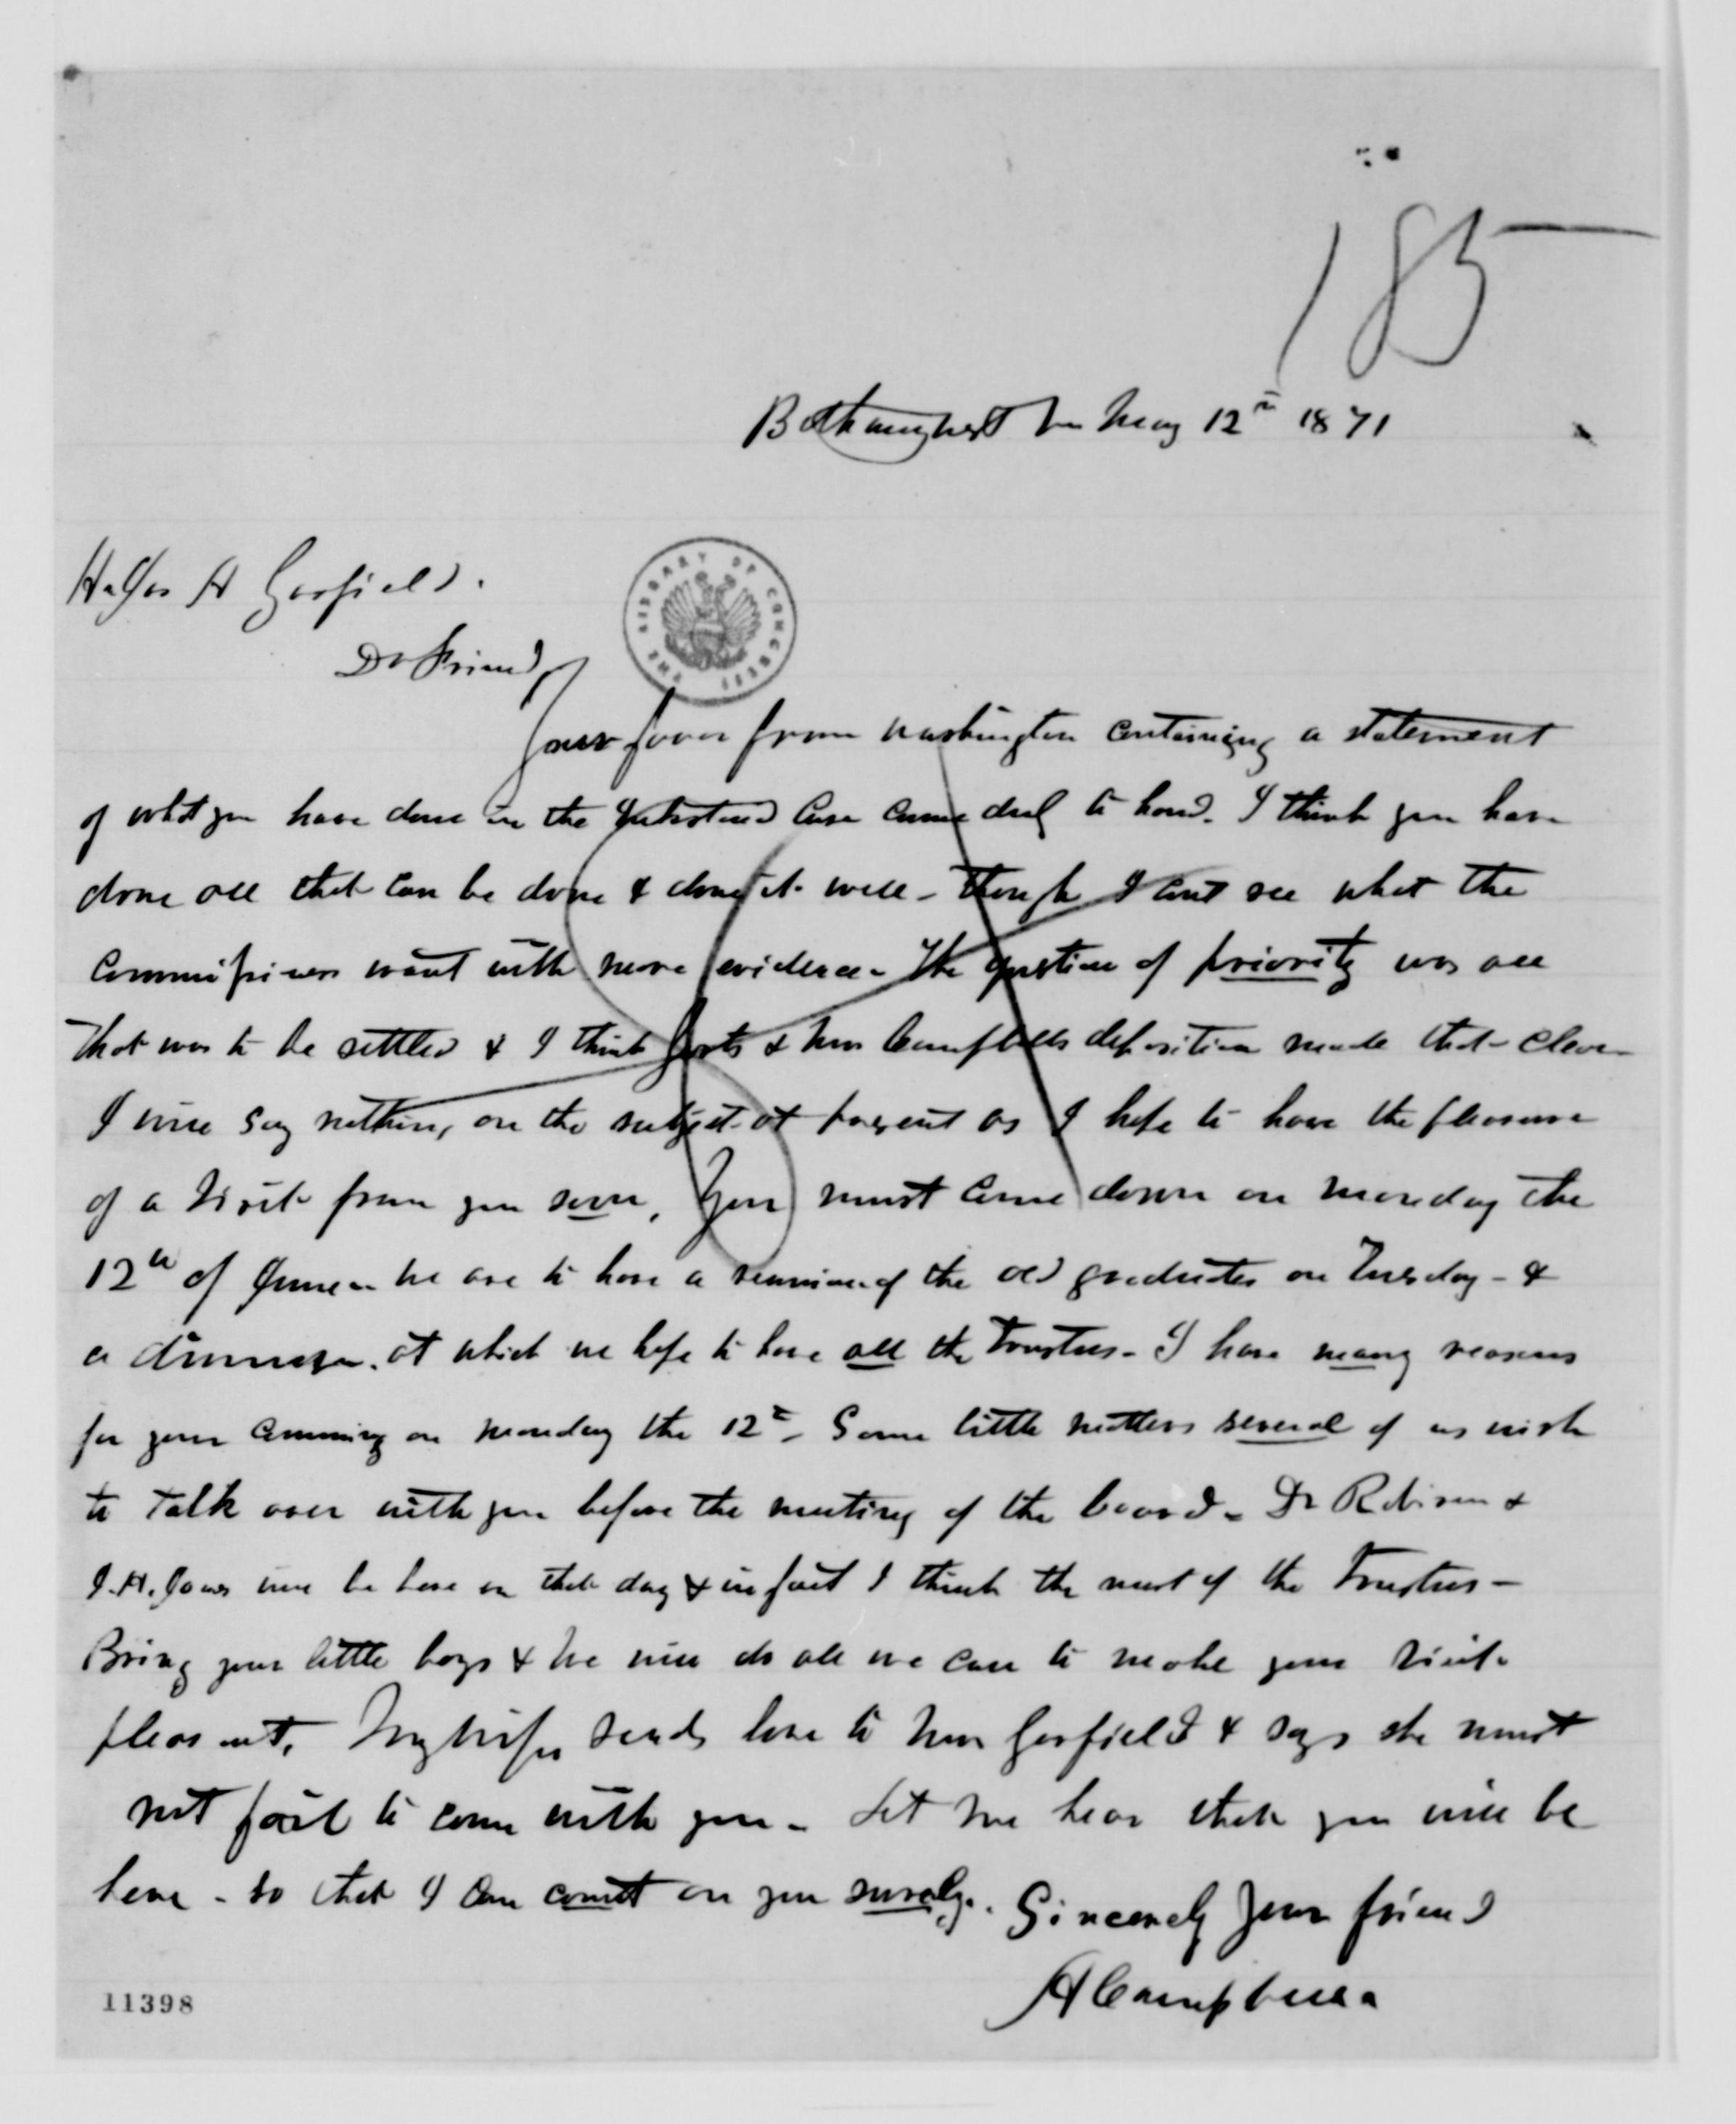 185
Bethany West Va May 12th 1871
THE LIBRARY OF CONGRESS
H. Jas A Garfield.
Dr Friend,
Your favor from Washington containing a statement
of what you have done in the case came duly to hand. I think you have
done all that can be done & done it well - though I cant see what the
Commissioners want with more evidence - The question of priority was all
that was to be settled & I think & Campbells deposition made that clear -
I will say nothing on the subject at present as I hope to have the pleasure
of a visit from you soon, You must come down on Monday the
12th of June - We are to have a reunion of the old graduates on Tuesday - &
a dinner at which we hope to have all the Trustees - I have many reasons
for your comming on Monday the 12th - Some little matters several of us wish
to talk over with you before the meeting of the board - Dr Robison &
J. H. Jones will be here on that day & in fact I think the most of the Trustees -
Bring your little boys & we will do all we can to make your visit
pleasant. My wife sends love to Mrs Garfield & says she must
not fail to come with you - Let me hear that you will be
here - so that I can count on you surely. Sincerely your friend
A Campbell
11398